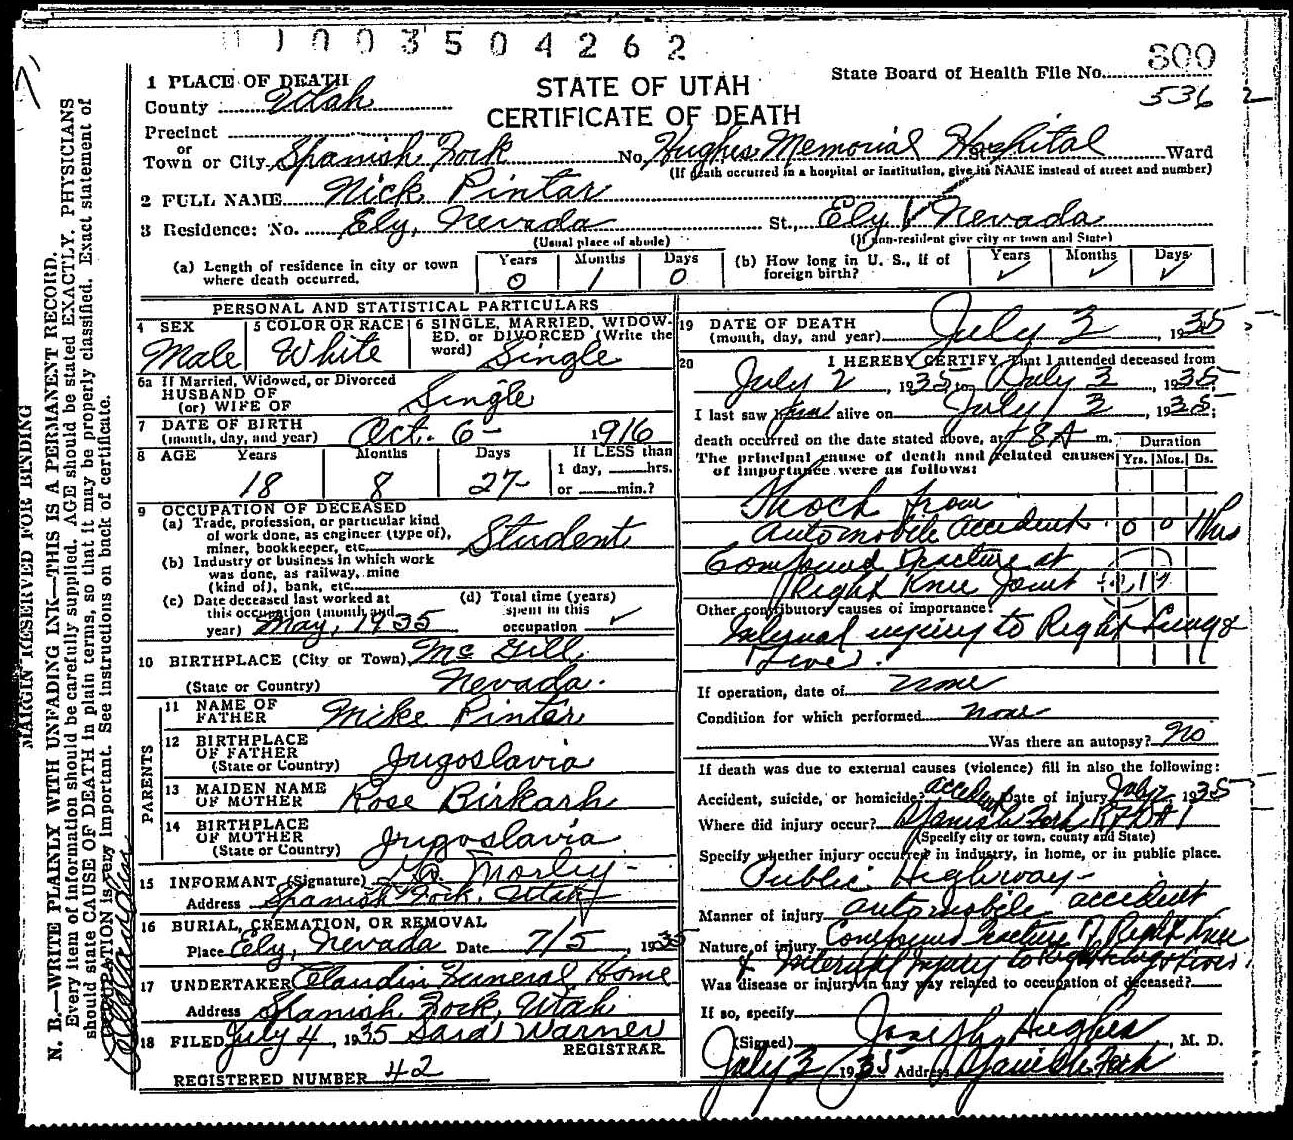 1003504262
300
State Board of Health File No.
536 2
STATE OF UTAH
CERTIFICATE OF DEATH
1 PLACE OF DEATH
County Utah
Precinct
or
Town or City Spanish Fork No. Hughes Memorial Hospital St. Ward
(If death occurred in a hospital or institution, give its NAME instead of street and number)
2 FULL NAME Nick Pintar
3 Residence: No. Ely, Nevada St., Ely Nevada
(Usual place of abode) (If non-resident give city or town and State)
(a) Length of residence in city or town where death occurred. Years 0 Months 1 Days 0
(b) How long in U. S., if of foreign birth? Years ✓ Months ✓ Days ✓
PERSONAL AND STATISTICAL PARTICULARS
4 SEX Male
5 COLOR OR RACE White
6 SINGLE, MARRIED, WIDOWED, or DIVORCED (Write the word) Single
6a If Married, Widowed, or Divorced
HUSBAND OF
(or) WIFE OF Single
7 DATE OF BIRTH
(month, day, and year) Oct. 6- 1916
8 AGE Years 18 Months 8 Days 27- If LESS than 1 day, hrs. or min.?
9 OCCUPATION OF DECEASED
(a) Trade, profession, or particular kind of work done, as engineer (type of), miner, bookkeeper, etc. Student
(b) Industry or business in which work was done, as railway, mine (kind of), bank, etc.
(c) Date deceased last worked at this occupation (month and year) May, 1935
(d) Total time (years) spent in this occupation ✓
10 BIRTHPLACE (City or Town) McGill
(State or Country) Nevada.
PARENTS
11 NAME OF FATHER Mike Pintar
12 BIRTHPLACE OF FATHER
(State or Country) Jugoslavia
13 MAIDEN NAME OF MOTHER Rose Birkarh
14 BIRTHPLACE OF MOTHER
(State or Country) Jugoslavia
15 INFORMANT (Signature) Morley-
Address Spanish Fork, Utah
16 BURIAL, CREMATION, OR REMOVAL
Place Ely, Nevada Date 7/5, 1935
17 UNDERTAKER Claudin Funeral Home
Address Spanish Fork, Utah
18 FILED July 4, 1935 Sara Warner
REGISTRAR
REGISTERED NUMBER 42
19 DATE OF DEATH
(month, day, and year) July 3, 1935
20 I HEREBY CERTIFY, That I attended deceased from
July 2, 1935 to July 3, 1935
I last saw him alive on July 3, 1935;
death occurred on the date stated above, at 8 A m.
The principal cause of death and related causes of importance were as follows:
Duration
Yrs. Mos. Ds.
Shock from
Automobile Accident 0 0 Hrs
Compound Fracture at
Right Knee Joint
Other contributory causes of importance:
Internal injury to Right Lung &
Liver.
If operation, date of none
Condition for which performed none
Was there an autopsy? No
If death was due to external causes (violence) fill in also the following:
Accident, suicide, or homicide? accident Date of injury July 2 1935
Where did injury occur? Spanish Fork RFD #1
(Specify city or town, county and State)
Specify whether injury occurred in industry, in home, or in public place.
Public Highway-
Manner of injury automobile accident
Nature of injury Compound fracture of Right Knee
& Internal Injury to Right Lung & Liver
Was disease or injury in any way related to occupation of deceased?
If so, specify
(Signed) Joseph Hughes, M. D.
July 3 1935 Address Spanish Fork
MARGIN RESERVED FOR BINDING
N. B.—WRITE PLAINLY WITH UNFADING INK—THIS IS A PERMANENT RECORD.
Every item of information should be carefully supplied. AGE should be stated EXACTLY. PHYSICIANS
should state CAUSE OF DEATH in plain terms, so that it may be properly classified. Exact statement of
OCCUPATION is very important. See instructions on back of certificate.